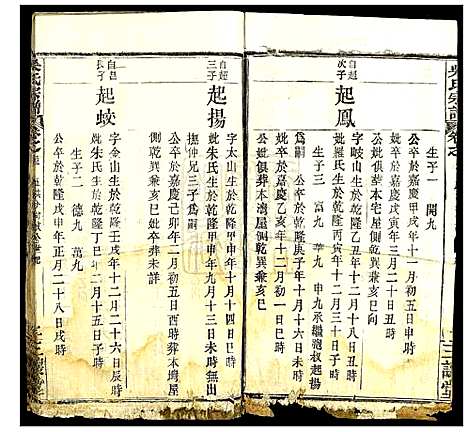 吳氏宗譜
生子一 開九
公卒於嘉慶甲戌年十一月初五日申時
妣卒於嘉慶戊寅年三月二十日丑時
公妣俱葬本宅屋側乾巽兼亥巳向
自超次子
起鳳
字岐山生於乾隆乙丑年十二月十八日丑時
妣羅氏生於乾隆丙寅年十二月三十日子時
生子三 富九 華九 申九承繼胞叔起揚
公卒於乾隆庚子年十月十六日寅時
妣卒於嘉慶乙亥年十一月初一日巳時
公妣俱葬本灣屋側乾巽兼亥巳
自超三子
起揚
字太山生於乾隆甲申年十月十四日戌時
妣朱氏生於乾隆甲申年九月十三日未時無出
撫仲兄三子為嗣
公卒於嘉慶十二月初五日酉時葬木塆屋
側乾巽兼亥巳妣卒葬未詳
自昌長子
起蛟
字金山生於乾隆壬戌年十二月二十六日辰時
妣朱氏生於乾隆丁巳年二月十五日亥時
生子二 德九 萬九
公卒於乾隆戊申年正月二十八日戌時
吳氏宗譜
三讓堂